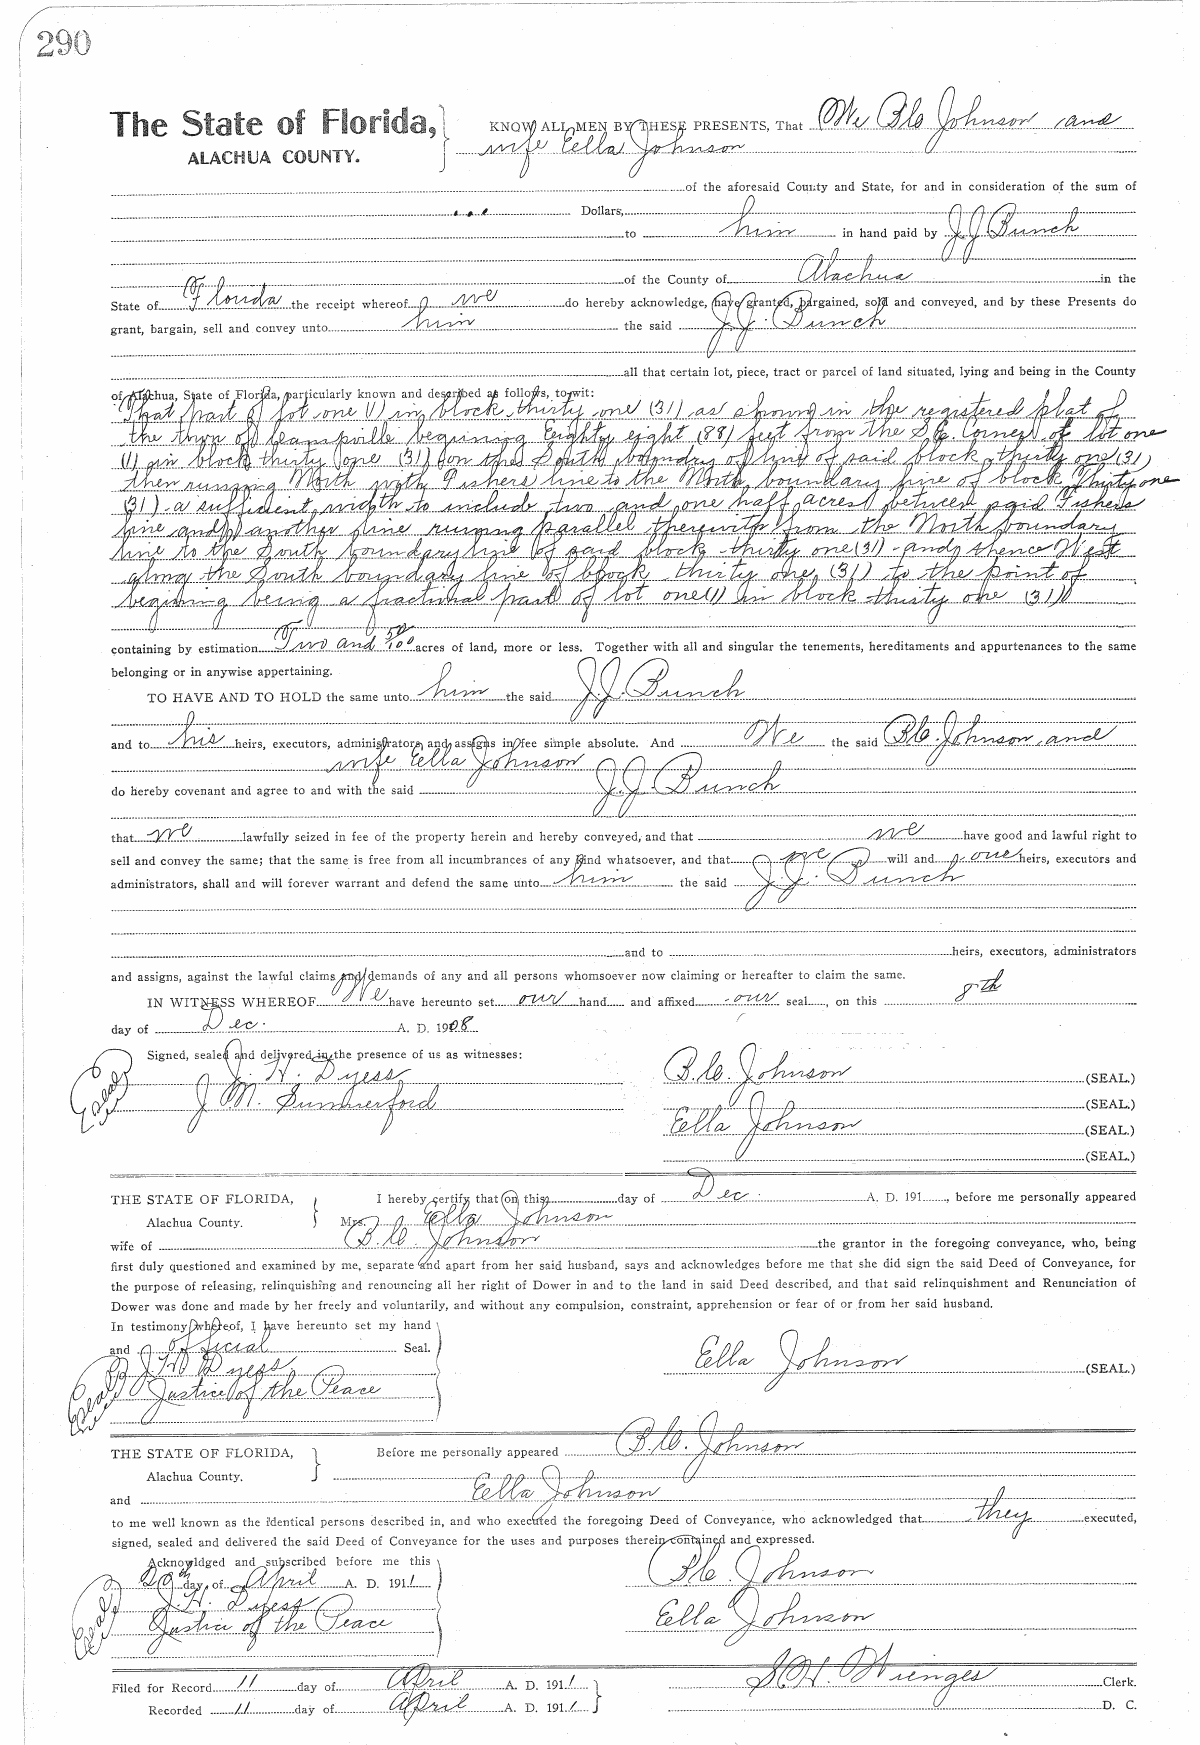 290
The State of Florida,
ALACHUA COUNTY.
KNOW ALL MEN BY THESE PRESENTS, That We B.C. Johnson and
wife Eella Johnson
of the aforesaid County and State, for and in consideration of the sum of
... Dollars,
to him in hand paid by J.J. Bunch
of the County of Alachua in the
State of Florida the receipt whereof we do hereby acknowledge, have granted, bargained, sold and conveyed, and by these Presents do
grant, bargain, sell and convey unto him the said J.J. Bunch
all that certain lot, piece, tract or parcel of land situated, lying and being in the County
of Alachua, State of Florida, particularly known and described as follows, to wit:
That part of lot one (1) in block thirty one (31) as shown in the registered plat of
the town of begining Eighty eight (88) feet from the S.E. Corner of lot one
(1) in block thirty one (31) on the South boundry of line of said block thirty one (31)
then running North with Fishers line to the North boundary line of block Thirty one
(31) a sufficient width to include two and one half acres between said Fishers
line and another line running parallel therewith from the North boundary
line to the South boundary line of said block thirty one (31) and thence West
along the South boundary line of block thirty one (31) to the point of
begining being a fractional part of lot one (1) in block thirty one (31)
containing by estimation Two and 50/100 acres of land, more or less. Together with all and singular the tenements, hereditaments and appurtenances to the same
belonging or in anywise appertaining.
TO HAVE AND TO HOLD the same unto him the said J.J. Bunch
and to his heirs, executors, administrators and assigns in fee simple absolute. And We the said B.C. Johnson and
wife Eella Johnson
do hereby covenant and agree to and with the said J.J. Bunch
that we lawfully seized in fee of the property herein and hereby conveyed, and that we have good and lawful right to
sell and convey the same; that the same is free from all incumbrances of any kind whatsoever, and that we will and our heirs, executors and
administrators, shall and will forever warrant and defend the same unto him the said J.J. Bunch
and to heirs, executors, administrators
and assigns, against the lawful claims and demands of any and all persons whomsoever now claiming or hereafter to claim the same.
IN WITNESS WHEREOF We have hereunto set our hand and affixed our seal, on this 8th
day of Dec. A. D. 1908
Signed, sealed and delivered in the presence of us as witnesses:
J. H. Dyess
J M. Summerford
(Seal)
B.C. Johnson (SEAL.)
(SEAL.)
Eella Johnson (SEAL.)
(SEAL.)
THE STATE OF FLORIDA,
Alachua County.
I hereby certify that on this day of Dec. A. D. 191, before me personally appeared
Mrs. Eella Johnson
wife of B.C. Johnson the grantor in the foregoing conveyance, who, being
first duly questioned and examined by me, separate and apart from her said husband, says and acknowledges before me that she did sign the said Deed of Conveyance, for
the purpose of releasing, relinquishing and renouncing all her right of Dower in and to the land in said Deed described, and that said relinquishment and Renunciation of
Dower was done and made by her freely and voluntarily, and without any compulsion, constraint, apprehension or fear of or from her said husband.
In testimony whereof, I have hereunto set my hand
and official Seal.
J H Dyess
Justice of the Peace
(Seal)
Eella Johnson (SEAL.)
THE STATE OF FLORIDA,
Alachua County.
Before me personally appeared B.C. Johnson
and Eella Johnson
to me well known as the identical persons described in, and who executed the foregoing Deed of Conveyance, who acknowledged that they executed,
signed, sealed and delivered the said Deed of Conveyance for the uses and purposes therein contained and expressed.
Acknowldged and subscribed before me this
day of April A. D. 1911
J. H. Dyess
Justice of the Peace
(Seal)
B.C. Johnson
Eella Johnson
Filed for Record 11 day of April A. D. 1911
Recorded 11 day of April A. D. 1911
S.H. Wienges Clerk.
D. C.